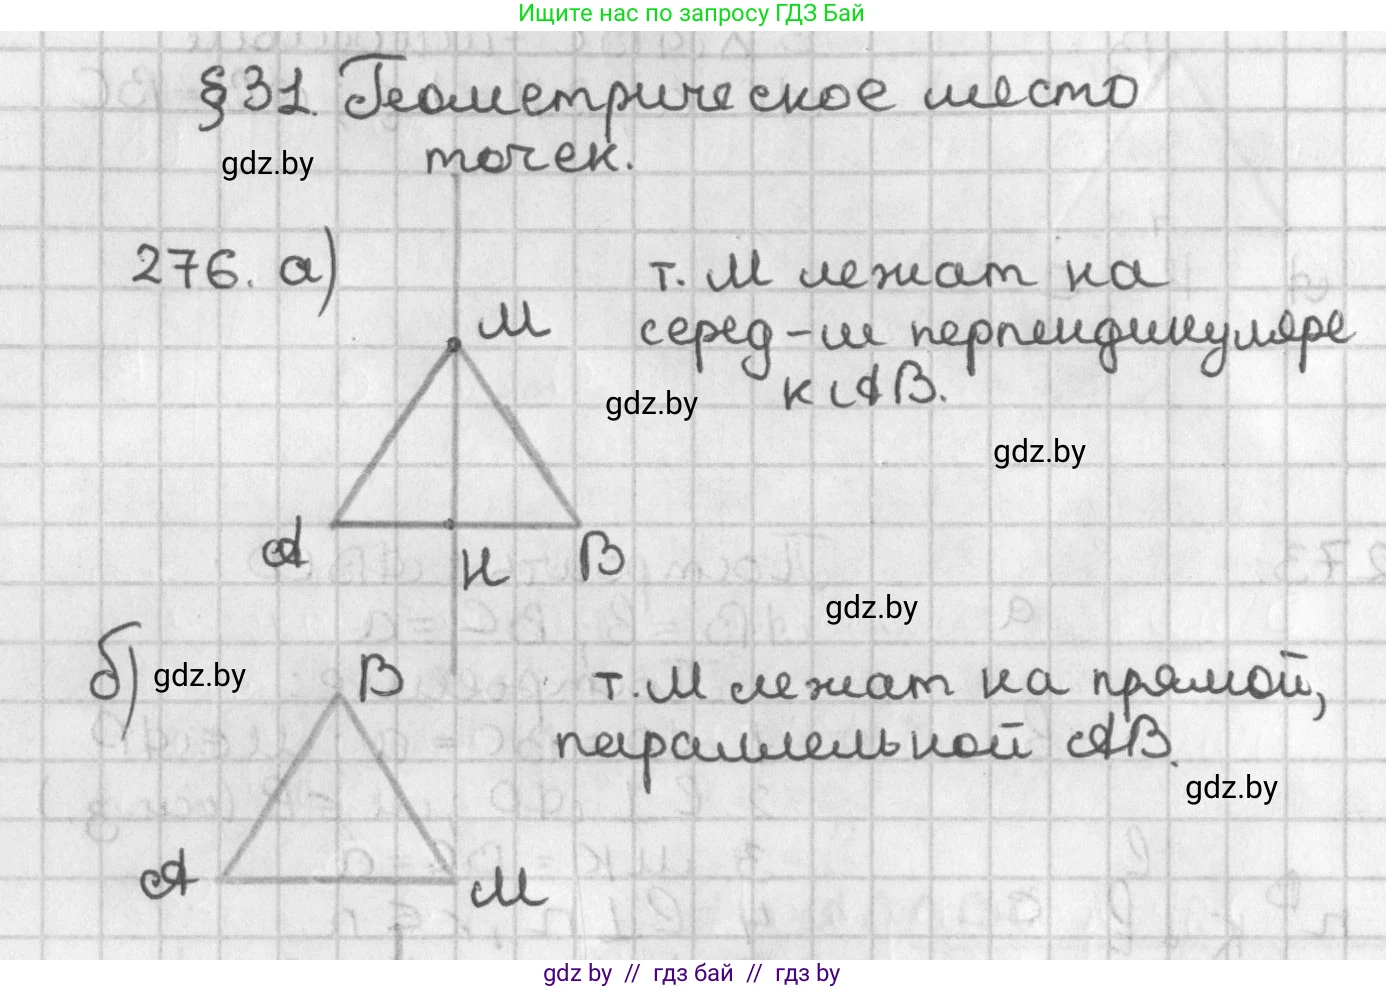 Ищите нас по запросу ГДЗ Бай
§31. Геометрическое место
точек.
gdz.by
276. а)
М
т. М лежат на
серед-м перпендикуляре
к АВ.
gdz.by
gdz.by
А
Н
В
gdz.by
б)
gdz.by
В
т. М лежат на прямой,
параллельной АВ.
gdz.by
А
М
gdz by // гдз бай // гдз by